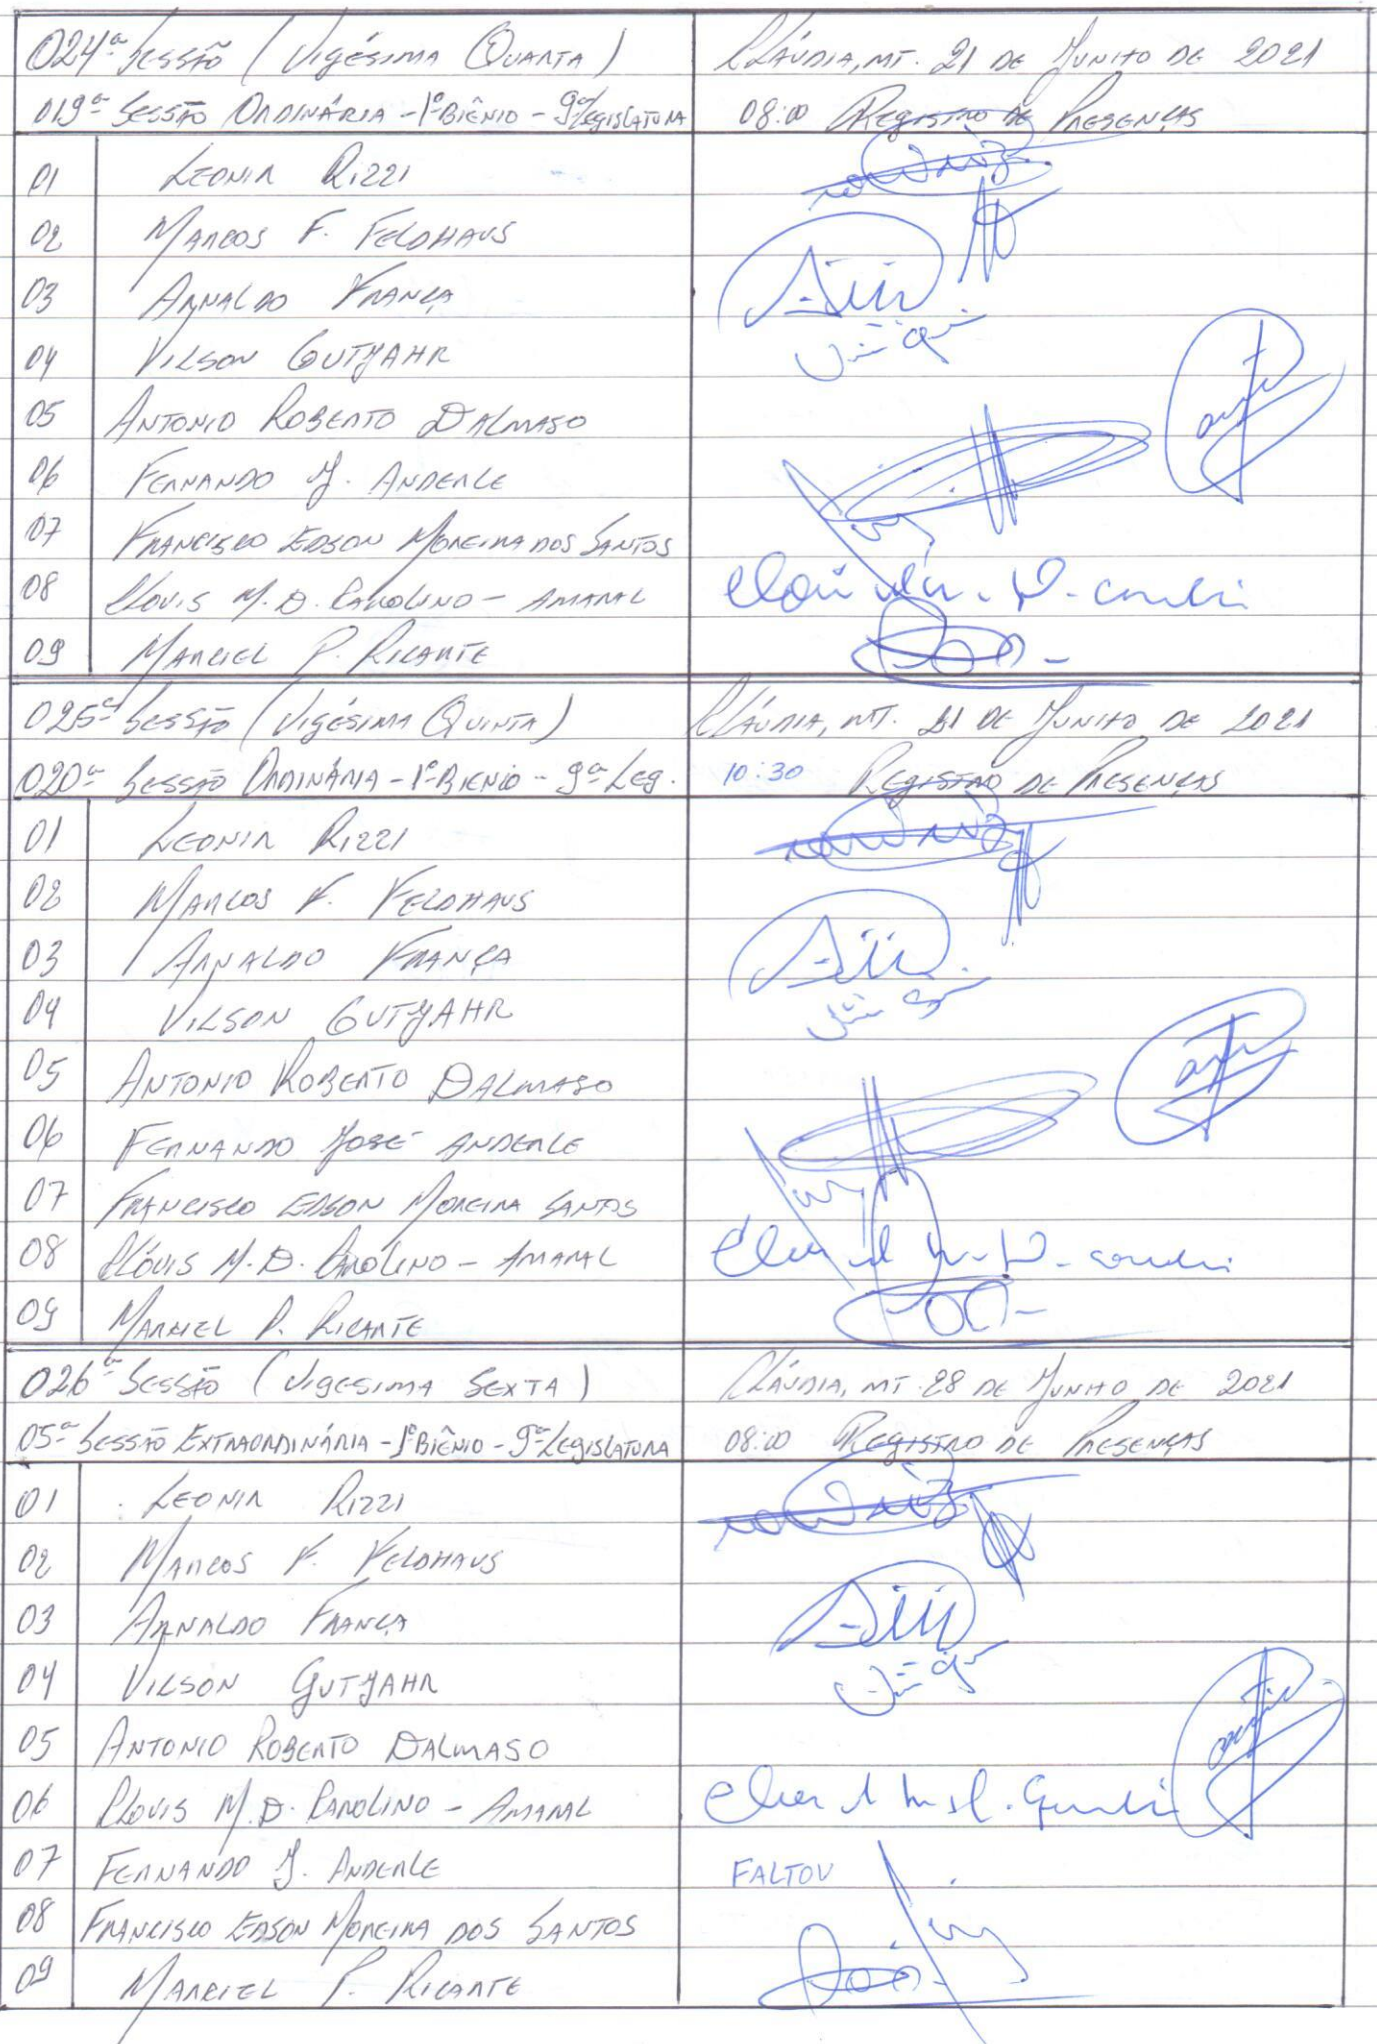 024ª Sessão (Vigésima Quarta) Cláudia, MT. 21 de Junho de 2021
019ª Sessão Ordinária - 1º Biênio - 9ª Legislatura 08:00 Registro de Presenças
01 Leonir Rizzi
02 Marcos F. Feldhaus
03 Arnaldo França
04 Vilson Gutjahr
05 Antonio Roberto Dalmaso
06 Fernando J. Anderle
07 Francisco Edson Moreira dos Santos
08 Clovis M. D. Carolino - Amaral
09 Marciel P. Ricarte
025ª Sessão (Vigésima Quinta) Cláudia, MT. 21 de Junho de 2021
020ª Sessão Ordinária - 1º Biênio - 9ª Leg. 10:30 Registro de Presenças
01 Leonir Rizzi
02 Marcos F. Feldhaus
03 Arnaldo França
04 Vilson Gutjahr
05 Antonio Roberto Dalmaso
06 Fernando José Anderle
07 Francisco Edson Moreira Santos
08 Clóvis M. D. Carolino - Amaral
09 Marciel P. Ricarte
026ª Sessão (Vigesima Sexta) Cláudia, MT. 28 de Junho de 2021
05ª Sessão Extraordinária - 1º Biênio - 9ª Legislatura 08:00 Registro de Presenças
01 Leonir Rizzi
02 Marcos F. Feldhaus
03 Arnaldo França
04 Vilson Gutjahr
05 Antonio Roberto Dalmaso
06 Clovis M. D. Carolino - Amaral
07 Fernando J. Anderle FALTOU
08 Francisco Edson Moreira dos Santos
09 Marciel P. Ricarte